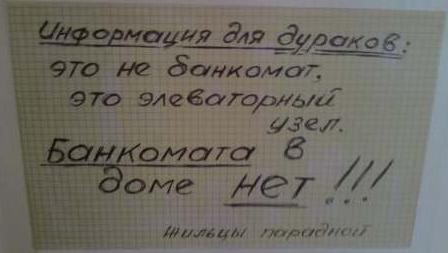 Информация для дураков:
это не банкомат,
это элеваторный
узел.
Банкомата в
доме нет!!!
жильцы парадной